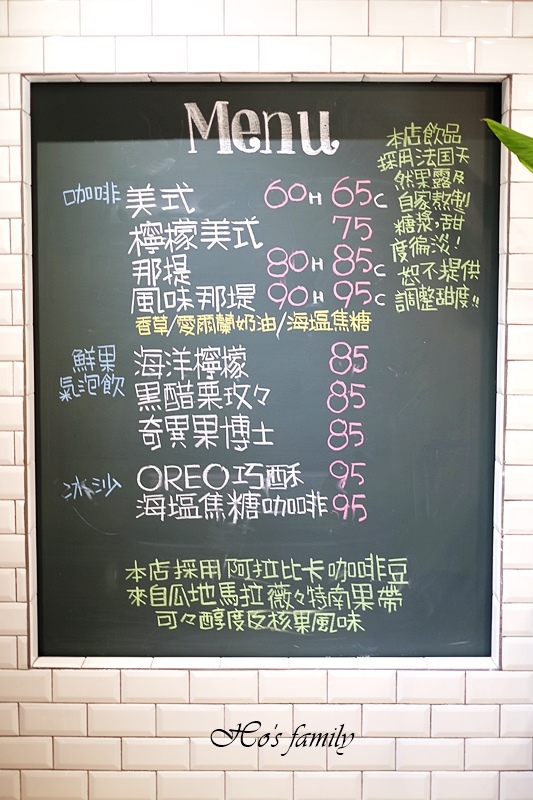 Menu
咖啡 美式 60H 65C
檸檬美式 75
那堤 80H 85C
風味那堤 90H 95C
香草/愛爾蘭奶油/海塩焦糖
鮮果
氣泡飲
海洋檸檬 85
黑醋栗玫々 85
奇異果博士 85
冰沙 OREO巧酥 95
海塩焦糖咖啡 95
本店飲品
採用法国天
然果露及
自家熬製
糖漿,甜
度偏淡!
恕不提供
調整甜度!!
本店採用阿拉比卡咖啡豆
來自瓜地馬拉薇々特南果帶
可々醇度及核果風味
Ho's family